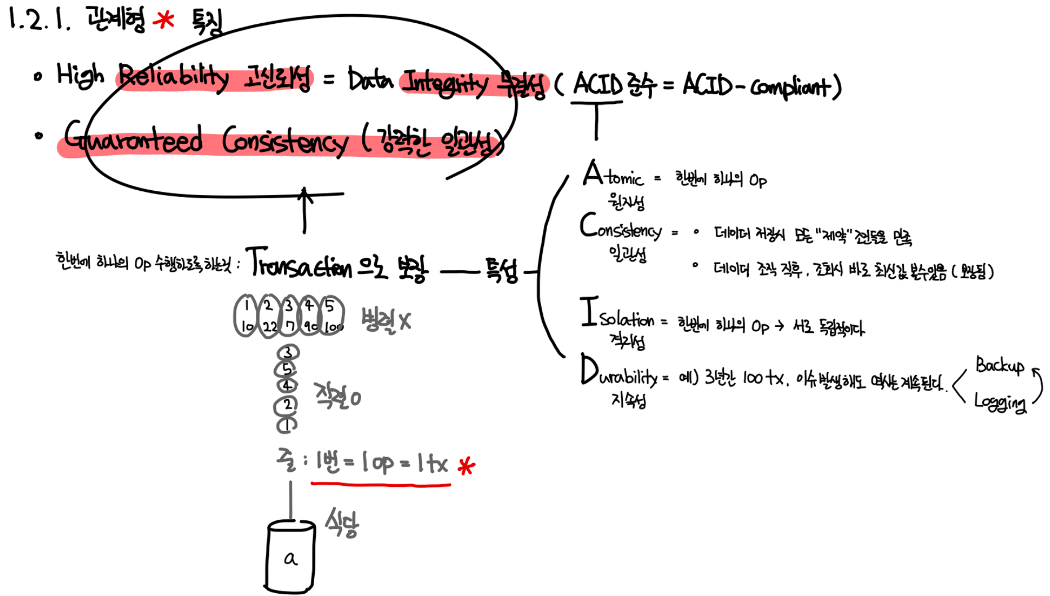 1.2.1. 관계형 * 특징
• High Reliability 고신뢰성 = Data Integrity 무결성 ( ACID 준수 = ACID-compliant)
• Guaranteed Consistency ( 강력한 일관성)
한번에 하나의 Op 수행하도록 하는것 : Transaction 으로 보장 — 특성
Atomic = 한번에 하나의 Op
원자성
Consistency = • 데이터 저장시 모든 "제약" 조건들을 만족
일관성
• 데이터 조작 직후, 조회시 바로 최신값 볼수있음 ( 보장됨)
Isolation = 한번에 하나의 Op → 서로 독립적이다.
격리성
Durability = 예) 3년간 100tx, 이슈 발생해도 역사는 계속된다.
지속성
Backup
Logging
1 2 3 4 5
10 22 7 90 100
병렬 X
3
5
4
2
1
직렬 O
줄 : 1번 = 1op = 1tx *
식당
a